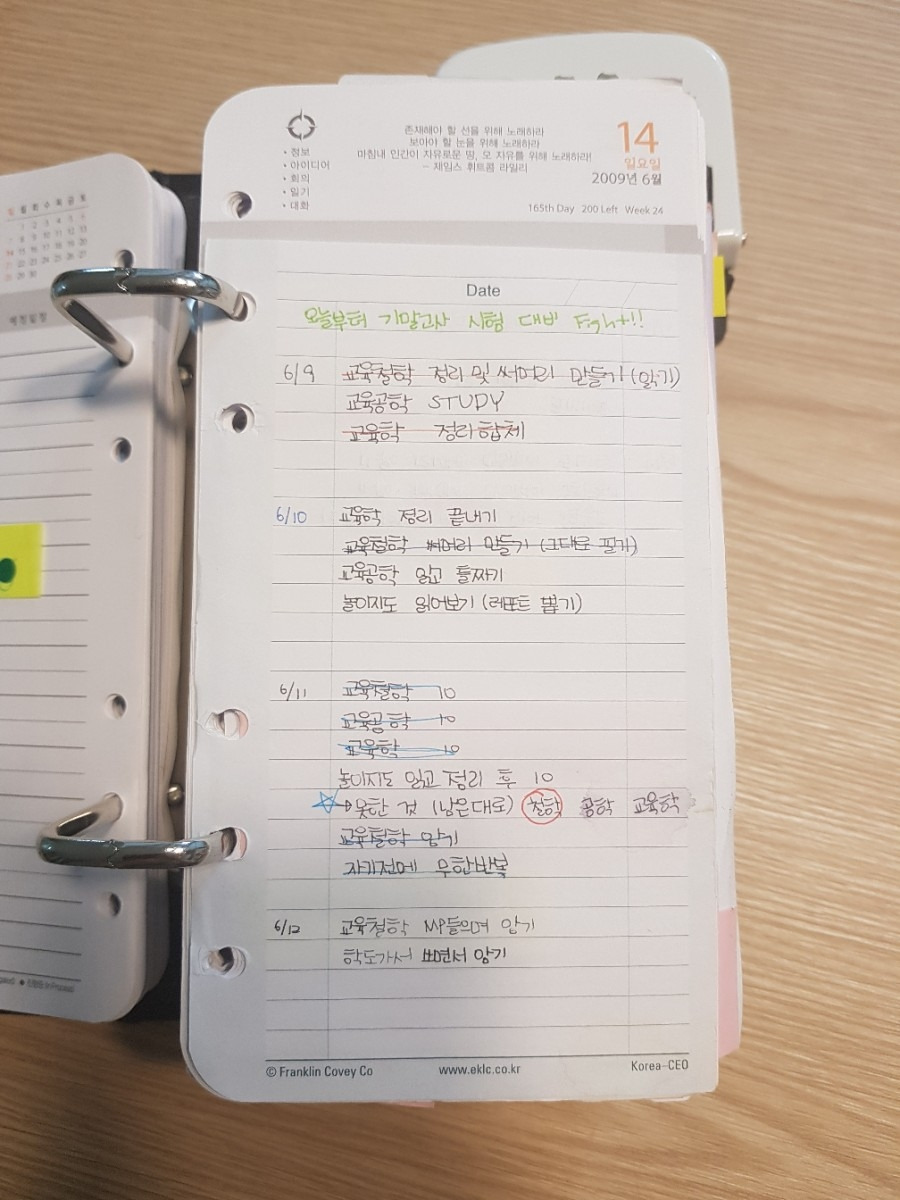 일 월 화 수 목 금 토
1 2 3 4 5 6
7 8 9 10 11 12 13
14 15 16 17 18 19 20
21 22 23 24 25 26 27
28 29 30
예정일정
• 정보
• 아이디어
• 회의
• 일기
• 대화
존재해야 할 선을 위해 노래하라
보아야 할 눈을 위해 노래하라
마침내 인간이 자유로운 땅, 오 자유를 위해 노래하라!
– 제임스 휘트콤 라일리
14
일요일
2009년 6월
165th Day 200 Left Week 24
Date
오늘부터 기말고사 시험 대비 Fight!!
6/9 교육철학 정리 및 써머리 만들기 (읽기)
교육공학 STUDY
교육학 정리 합체
6/10 교육학 정리 끝내기
교육철학 써머리 만들기 (그대로 필기)
교육공학 읽고 틀짜기
놀이지도 읽어보기 (레포트 뽑기)
6/11 교육철학 10
교육공학 10
교육학 10
놀이지도 읽고 정리 후 10
☆→못한 것 (남은대로) 철학 공학 교육학
교육철학 암기
자기전에 무한반복
6/12 교육철학 MP들으며 암기
학도가서 쓰면서 암기
© Franklin Covey Co www.eklc.co.kr Korea–CEO